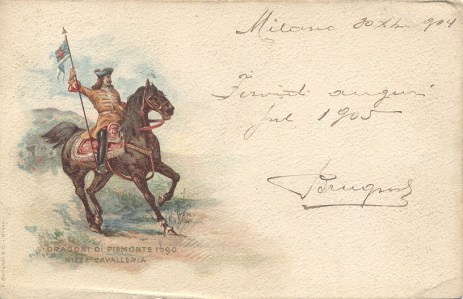 Milano 30 Xbre 904
Fervidi auguri
pel 1905
DRAGONI DI PIEMONTE 1690
NIZZA CAVALLERIA